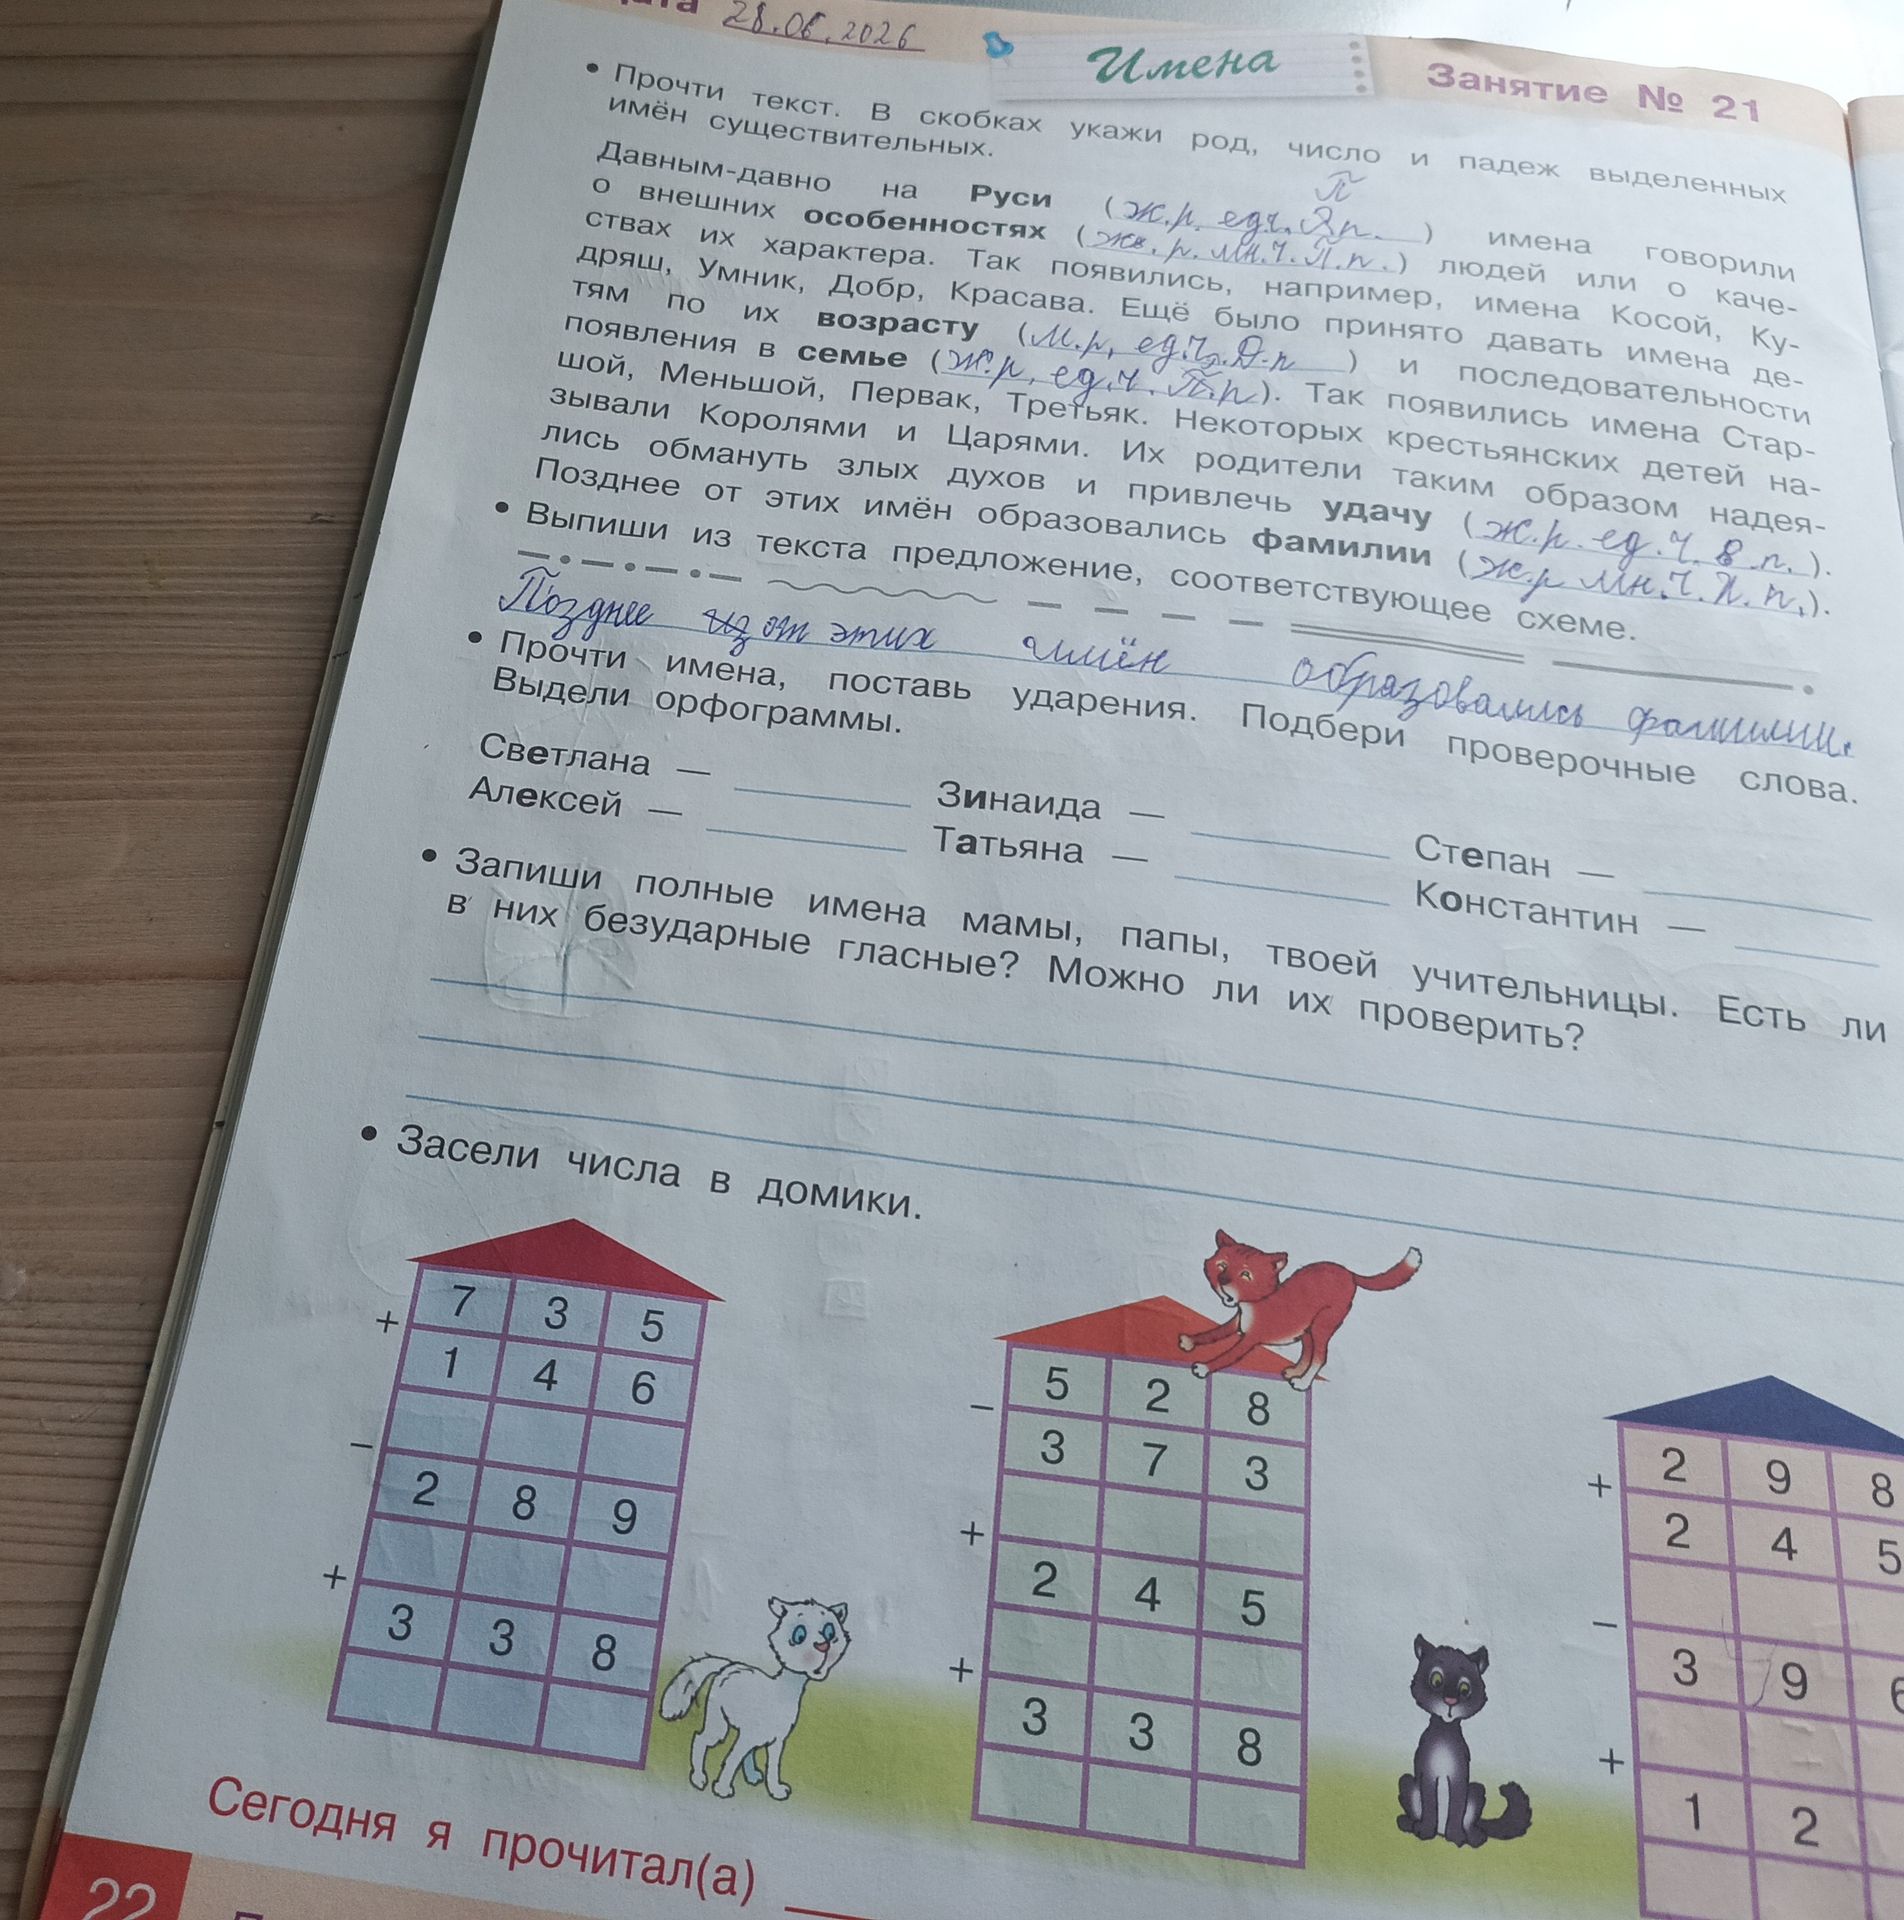 28.06.2026
Имена
Занятие № 21
• Прочти текст. В скобках укажи род, число и падеж выделенных
имён существительных.
П
Давным-давно на Руси (ж.р. ед.ч. п.) имена говорили
о внешних особенностях (ж. р. мн.ч. П.п.) людей или о каче-
ствах их характера. Так появились, например, имена Косой, Ку-
дряш, Умник, Добр, Красава. Ещё было принято давать имена де-
тям по их возрасту (м.р. ед.ч. Д.п) и последовательности
появления в семье (ж.р. ед.ч. П.п). Так появились имена Стар-
шой, Меньшой, Первак, Третьяк. Некоторых крестьянских детей на-
зывали Королями и Царями. Их родители таким образом надея-
лись обмануть злых духов и привлечь удачу (ж.р. ед.ч. в.п.).
Позднее от этих имён образовались фамилии (ж.р мн.ч. п.).
• Выпиши из текста предложение, соответствующее схеме.
Позднее из от этих имён образовались фамилии.
• Прочти имена, поставь ударения. Подбери проверочные слова.
Выдели орфограммы.
Светлана — Зинаида — Степан —
Алексей — Татьяна — Константин —
• Запиши полные имена мамы, папы, твоей учительницы. Есть ли
в них безударные гласные? Можно ли их проверить?
• Засели числа в домики.
7 3 5
+
1 4 6
−
2 8 9
+
3 3 8
5 2 8
−
3 7 3
+
2 4 5
+
3 3 8
2 9 8
+
2 4 5
−
3 9
+
1 2
Сегодня я прочитал(а)
22